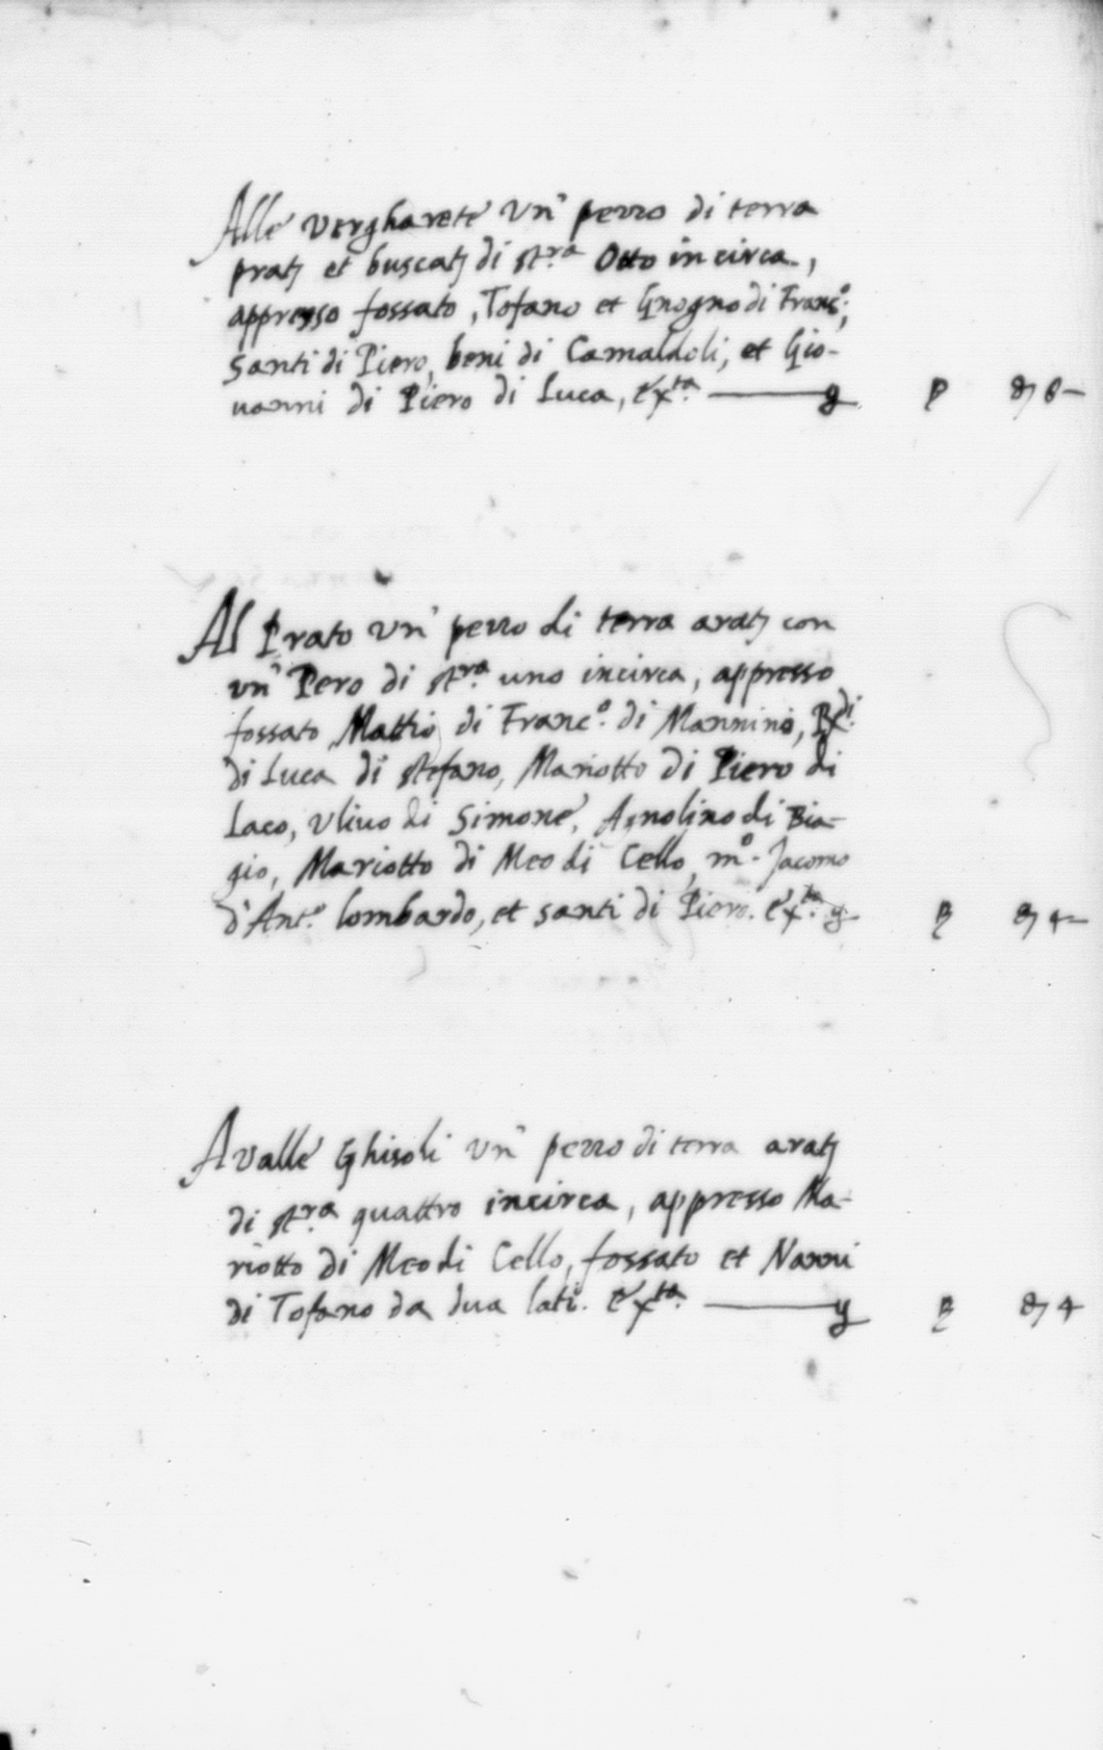 Alle vergharete un' pezzo di terra
prat; et buscat; di st.ra Otto in circa,
appresso fossato, Tofano et Gnogno di Franc.o;
Santi di Piero, beni di Camaldoli, et Gio-
uanni di Piero di Luca, ext.ta
Al Prato un' pezzo di terra arat; con
un' Pero di st.ra uno incirca, appresso
fossato, Mattio di Franc.o di Mannino,
di Luca di Stefano, Mariotto di Piero di
Laco, Uliuo di Simone, Agnolino di Bia-
gio, Mariotto di Meo di Cello, m.o Jacomo
d'Ant.o lombardo, et Santi di Piero. ext.ta
A valle Ghisoli un' pezzo di terra arat;
di st.ra quattro incirca, appresso Ma-
riotto di Meo di Cello, fossato et Nanni
di Tofano da dua lati. ext.ta